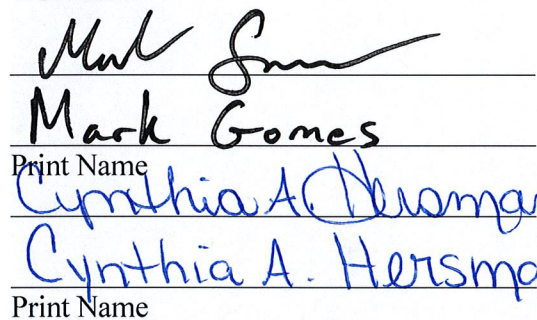 Mark Gomes
Mark Gomes
Print Name
Cynthia A. Hersma
Cynthia A. Hersma
Print Name